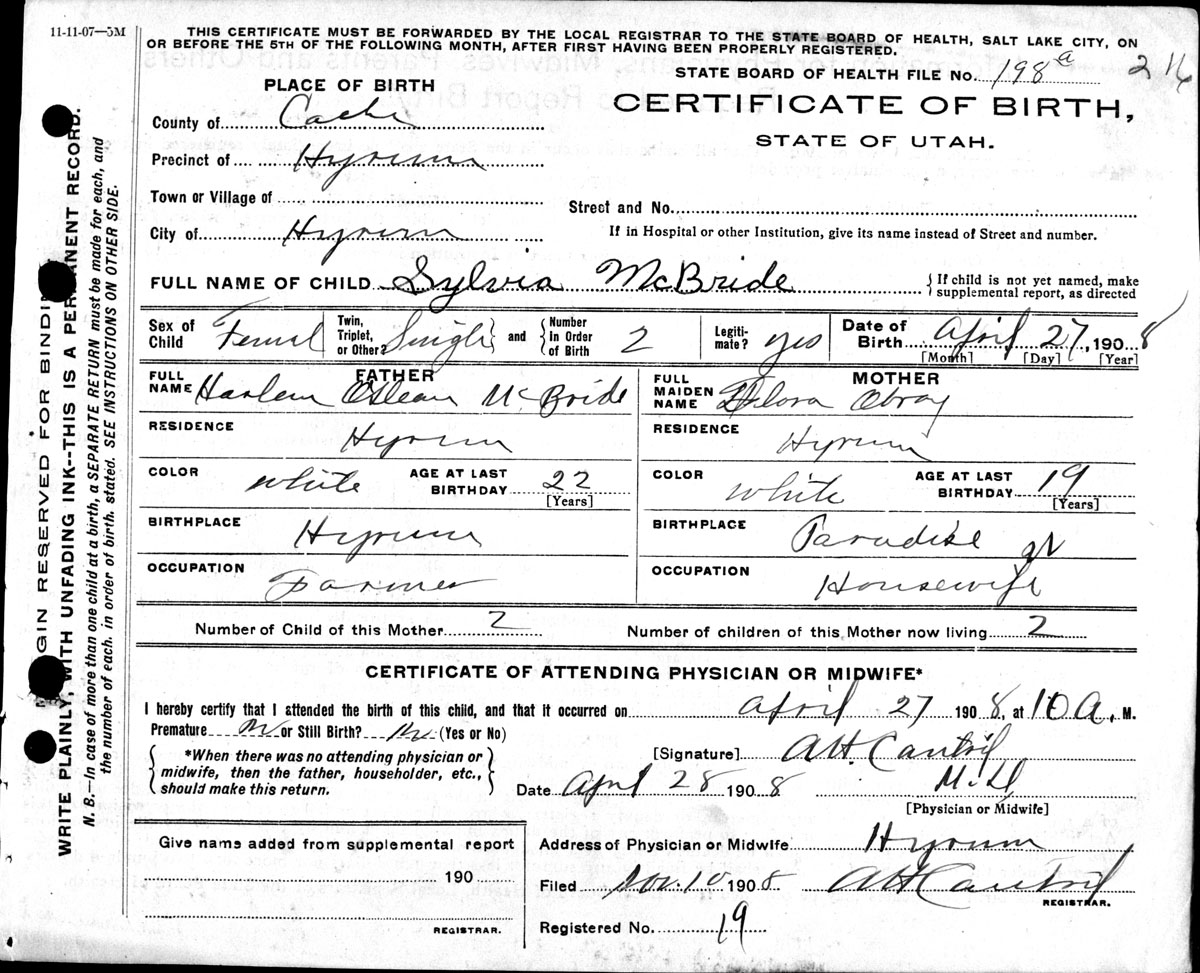 11-11-07—5M
THIS CERTIFICATE MUST BE FORWARDED BY THE LOCAL REGISTRAR TO THE STATE BOARD OF HEALTH, SALT LAKE CITY, ON
OR BEFORE THE 5TH OF THE FOLLOWING MONTH, AFTER FIRST HAVING BEEN PROPERLY REGISTERED.
STATE BOARD OF HEALTH FILE No. 198a
PLACE OF BIRTH
CERTIFICATE OF BIRTH,
STATE OF UTAH.
County of Cache
Precinct of Hyrum
Town or Village of
Street and No.
City of Hyrum
If in Hospital or other Institution, give its name instead of Street and number.
FULL NAME OF CHILD Sylvia McBride
{If child is not yet named, make supplemental report, as directed
Sex of Child Femal
Twin, Triplet, or Other? Single and Number In Order of Birth 2
Legitimate? yes
Date of Birth April 27, 1908
[Month] [Day] [Year]
FATHER
FULL NAME Harlem Oslean McBride
MOTHER
FULL MAIDEN NAME Delora Obray
RESIDENCE Hyrum
RESIDENCE Hyrum
COLOR white AGE AT LAST BIRTHDAY 22 [Years]
COLOR white AGE AT LAST BIRTHDAY 19 [Years]
BIRTHPLACE Hyrum
BIRTHPLACE Paradise
OCCUPATION Farmer
OCCUPATION Housewife
Number of Child of this Mother 2
Number of children of this Mother now living 2
CERTIFICATE OF ATTENDING PHYSICIAN OR MIDWIFE*
I hereby certify that I attended the birth of this child, and that it occurred on April 27 1908, at 10 A. M.
Premature No or Still Birth? No (Yes or No)
*When there was no attending physician or
midwife, then the father, householder, etc.,
should make this return.
[Signature] AH. Cantril
Date April 28 1908 M.D
[Physician or Midwife]
Give name added from supplemental report
190
REGISTRAR.
Address of Physician or Midwife Hyrum
Filed Nov. 10 1908 AH Cantril
REGISTRAR.
Registered No. 19
MARGIN RESERVED FOR BINDING
WRITE PLAINLY, WITH UNFADING INK--THIS IS A PERMANENT RECORD.
N. B.—In case of more than one child at a birth, a SEPARATE RETURN must be made for each, and
the number of each, in order of birth, stated. SEE INSTRUCTIONS ON OTHER SIDE.